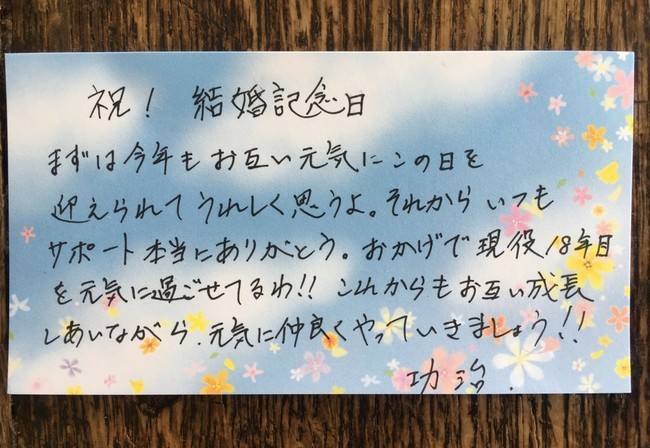 祝！ 結婚記念日
まずは今年もお互い元気にこの日を
迎えられてうれしく思うよ。それからいつも
サポート本当にありがとう。おかげで現役18年目
を元気に過ごせてるわ!! これからもお互い成長
しあいながら、元気に仲良くやっていきましょう!!
功治.